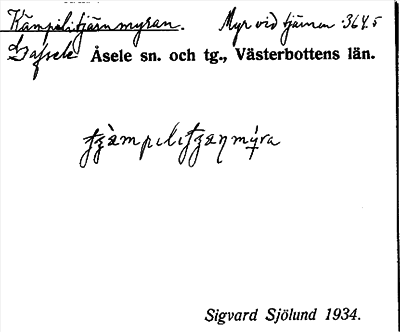 Kämpilitjärnmyran. Myr vid tjärnen 364.5
Gafsele Åsele sn. och tg., Västerbottens län.
Sigvard Sjölund 1934.